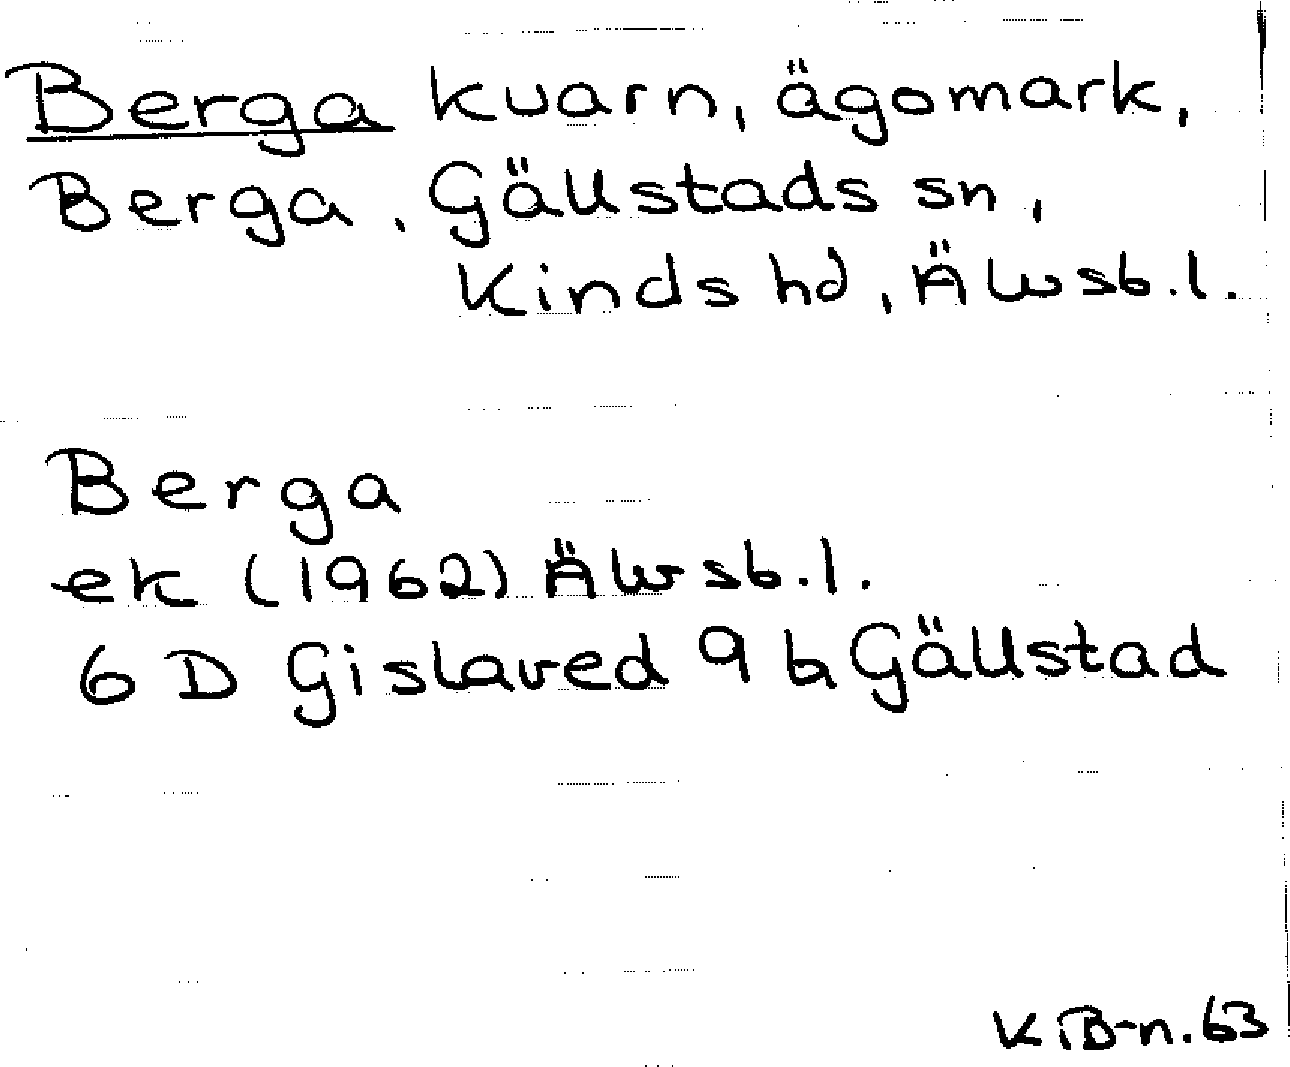 Berga kvarn, ägomark,
Berga, Gällstads sn,
Kinds hd, Älvsb.l.
Berga
ek (1962) Älvsb.l.
6 D Gislaved 9 b Gällstad
K B-n. 63